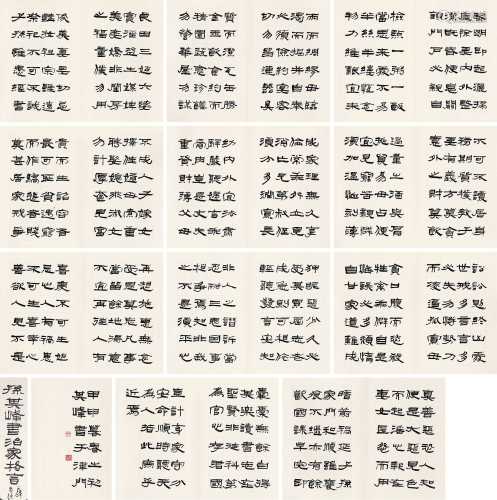 黎明即起灑掃
庭除要內外整
潔既昏便息關
鎖門戶必親自
檢點一粥一飯
當思來處不易
半絲半縷恆念
物力維艱宜未
雨而綢繆毋臨
渴而掘井自奉
必須儉約宴客
切勿留連器具
質而潔瓦缶勝
金玉飲食約而
精園蔬愈珍饈
勿營華屋勿謀
良田三姑六婆
實淫盜之媒婢
美妾嬌非閨房
之福童僕勿用
俊美妻妾切忌
艷妝祖宗雖遠
祭祀不可不誠
子孫雖愚經書
不可不讀居身
務期質樸教子
要有義方莫貪
意外之財莫飲
過量之酒與肩
挑貿易毋占便
宜見窮苦親鄰
須加溫恤刻薄
成家理無久享
倫常乖舛立見
消亡兄弟叔侄
須分多潤寡長
幼內外宜法肅
辭嚴聽婦言乖
骨肉豈是丈夫
重資財薄父母
不成人子嫁女
擇佳婿毋索重
聘娶媳求淑女
勿計厚奩見富
貴而生諂容者
最可恥遇貧窮
而作驕態者賤
莫甚居家戒爭
訟訟則終凶處
世戒多言言多
必失勿恃勢力
而凌逼孤寡勿
貪口腹而恣殺
牲禽乖僻自是
悔誤必多頹惰
自甘家道難成
狎暱惡少久必
受其累屈志老
成急則可相依
輕聽發言安知
非人之譖訴當
忍耐三思因事
相爭焉知非我
之不是須平心
再想施惠無念
受恩莫忘凡事
當留餘地得意
不宜再往人有
喜慶不可生妒
忌心人有禍患
不可生喜幸心
善欲人見不是
真善惡恐人知
便是大惡見色
而起淫心報在
妻女匿怨而用
暗箭禍延子孫
家門和順雖饔
飧不繼亦有餘
歡國課早完即
囊橐無餘自得
至樂讀書志在
聖賢非徒科第
為官心存君國
豈計身家守分
安命順時聽天
為人若此庶乎
近焉
甲申暮春之初
其峰書于津門
孫其峰書治家格言